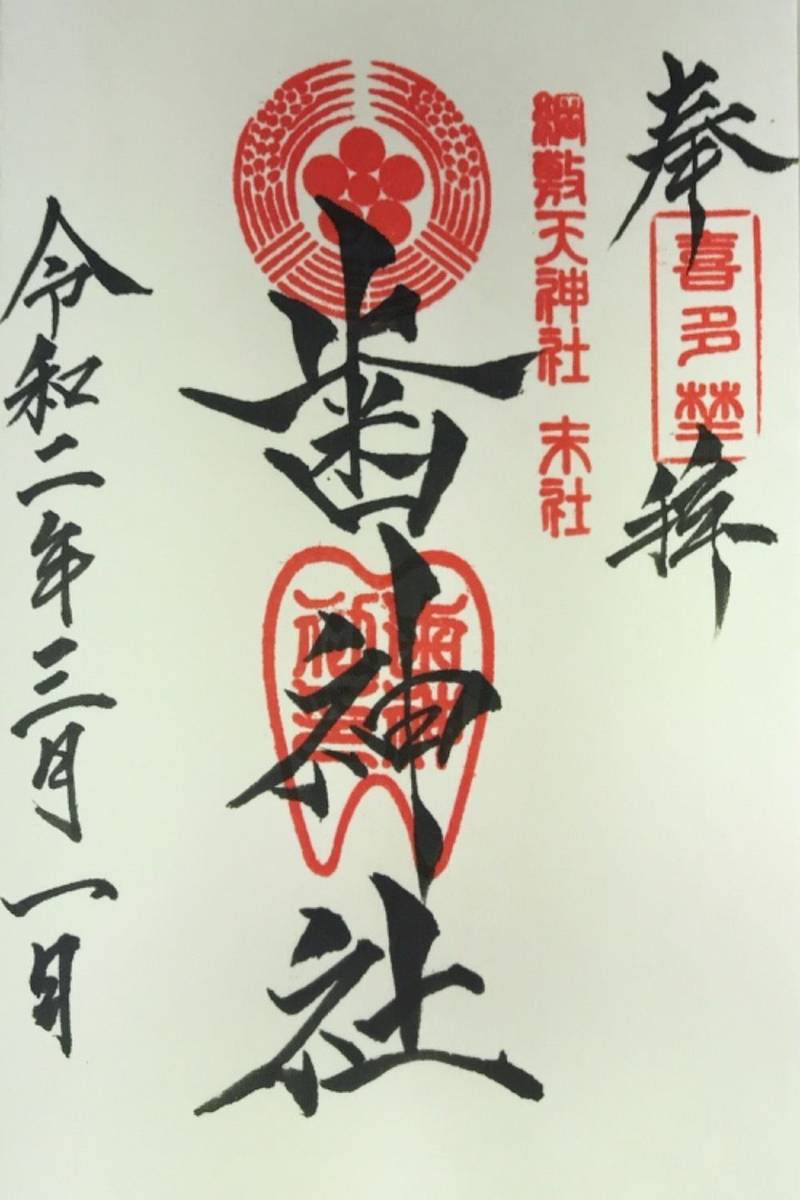 奉拝
喜多埜
綱敷天神社 末社
歯神社
令和二年三月一日